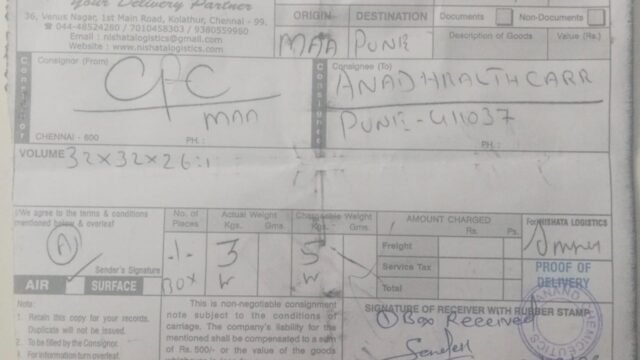 Your Delivery Partner
36, Venus Nagar, 1st Main Road, Kolathur, Chennai - 99.
☎ 044-48524260 / 7010458303 / 9380559980
Email : nishatalogistics@gmail.com
Website : www.nishatalogistics.com
ORIGIN DESTINATION Documents Non-Documents
MAA PUNE Description of Goods Value (Rs.)
Consignor Consignor (From) Consignee Consignee (To)
CPC ANADHRALTHCARR
MAA PUNE-411037
CHENNAI - 600 PH : PH :
VOLUME 32x32x26:1
I/We agree to the terms & conditions mentioned below & overleaf
No. of Pieces Actual Weight Kgs. Gms. Chargeable Weight Kgs. Gms. AMOUNT CHARGED Rs. Ps. For NISHATA LOGISTICS
A
-1- 3 5 Freight
BOX Service Tax
Total
Sender's Signature
PROOF OF DELIVERY
AIR SURFACE
Note:
1. Retain this copy for your records.
Duplicate will not be issued.
2. To be filled by the Consignor.
For information turn overleaf.
This is non-negotiable consignment
note subject to the conditions of
carriage. The company's liability for
the shall be compensated to a sum
of Rs. 500/- or the value of the goods
SIGNATURE OF RECEIVER WITH RUBBER STAMP
① Box Received
ANAND